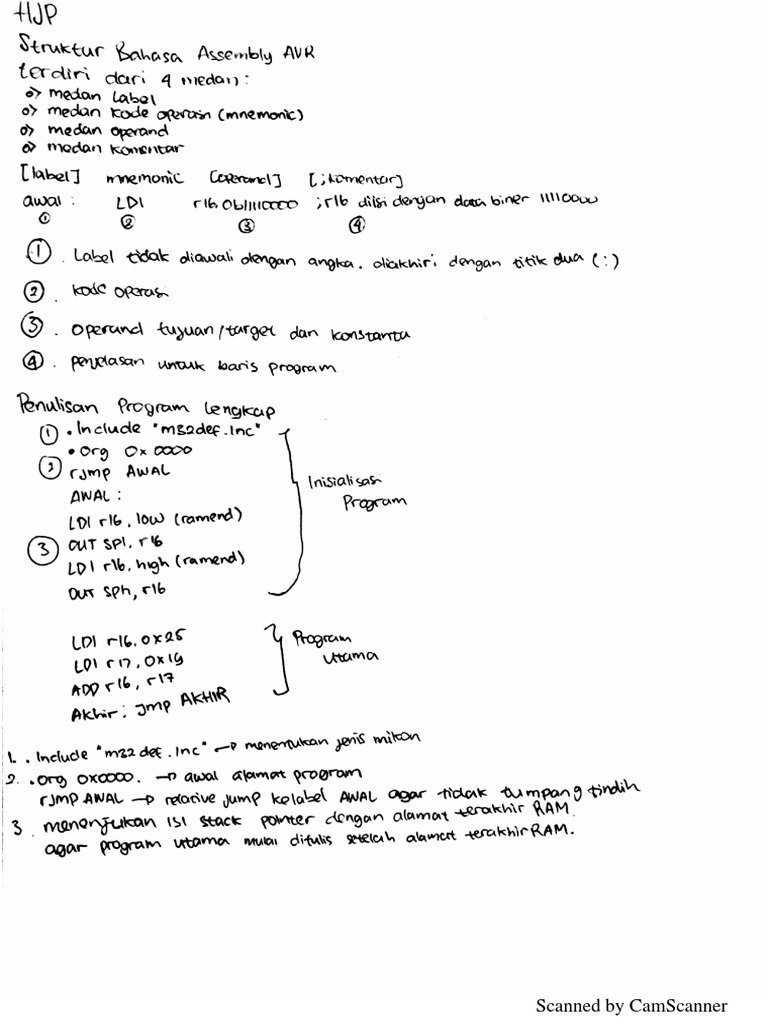 HJP
Struktur Bahasa Assembly AVR
terdiri dari 4 medan:
o> medan label
o> medan kode operasi (mnemonic)
o> medan operand
o> medan komentar
[label] mnemonic [operand] [;komentar]
awal : LDI r16, 0b11110000 ; r16 diisi dengan data biner 11110000
① ② ③ ④
① . Label tidak diawali dengan angka. diakhiri dengan titik dua (:)
② . kode operasi
③ . operand tujuan/target dan konstanta
④ . penjelasan untuk baris program
Penulisan Program lengkap
① .Include "m32def.inc"
.Org 0x0000
② rjmp AWAL
AWAL :
LDI r16, low (ramend)
③ OUT SPl, r16
LDI r16, high (ramend)
Out sph, r16
Inisialisasi
Program
LDI r16, 0x25
LDI r17, 0x19
ADD r16, r17
Akhir: jmp AKHIR
Program
Utama
1. .Include "m32def.inc" → menentukan jenis mikon
2. .org 0x0000. → awal alamat program
rjmp AWAL → relative jump kelabel AWAL agar tidak tumpang tindih
3. menenjukan isi stack pointer dengan alamat terakhir RAM.
agar program utama mulai ditulis setelah alamat terakhir RAM.
Scanned by CamScanner